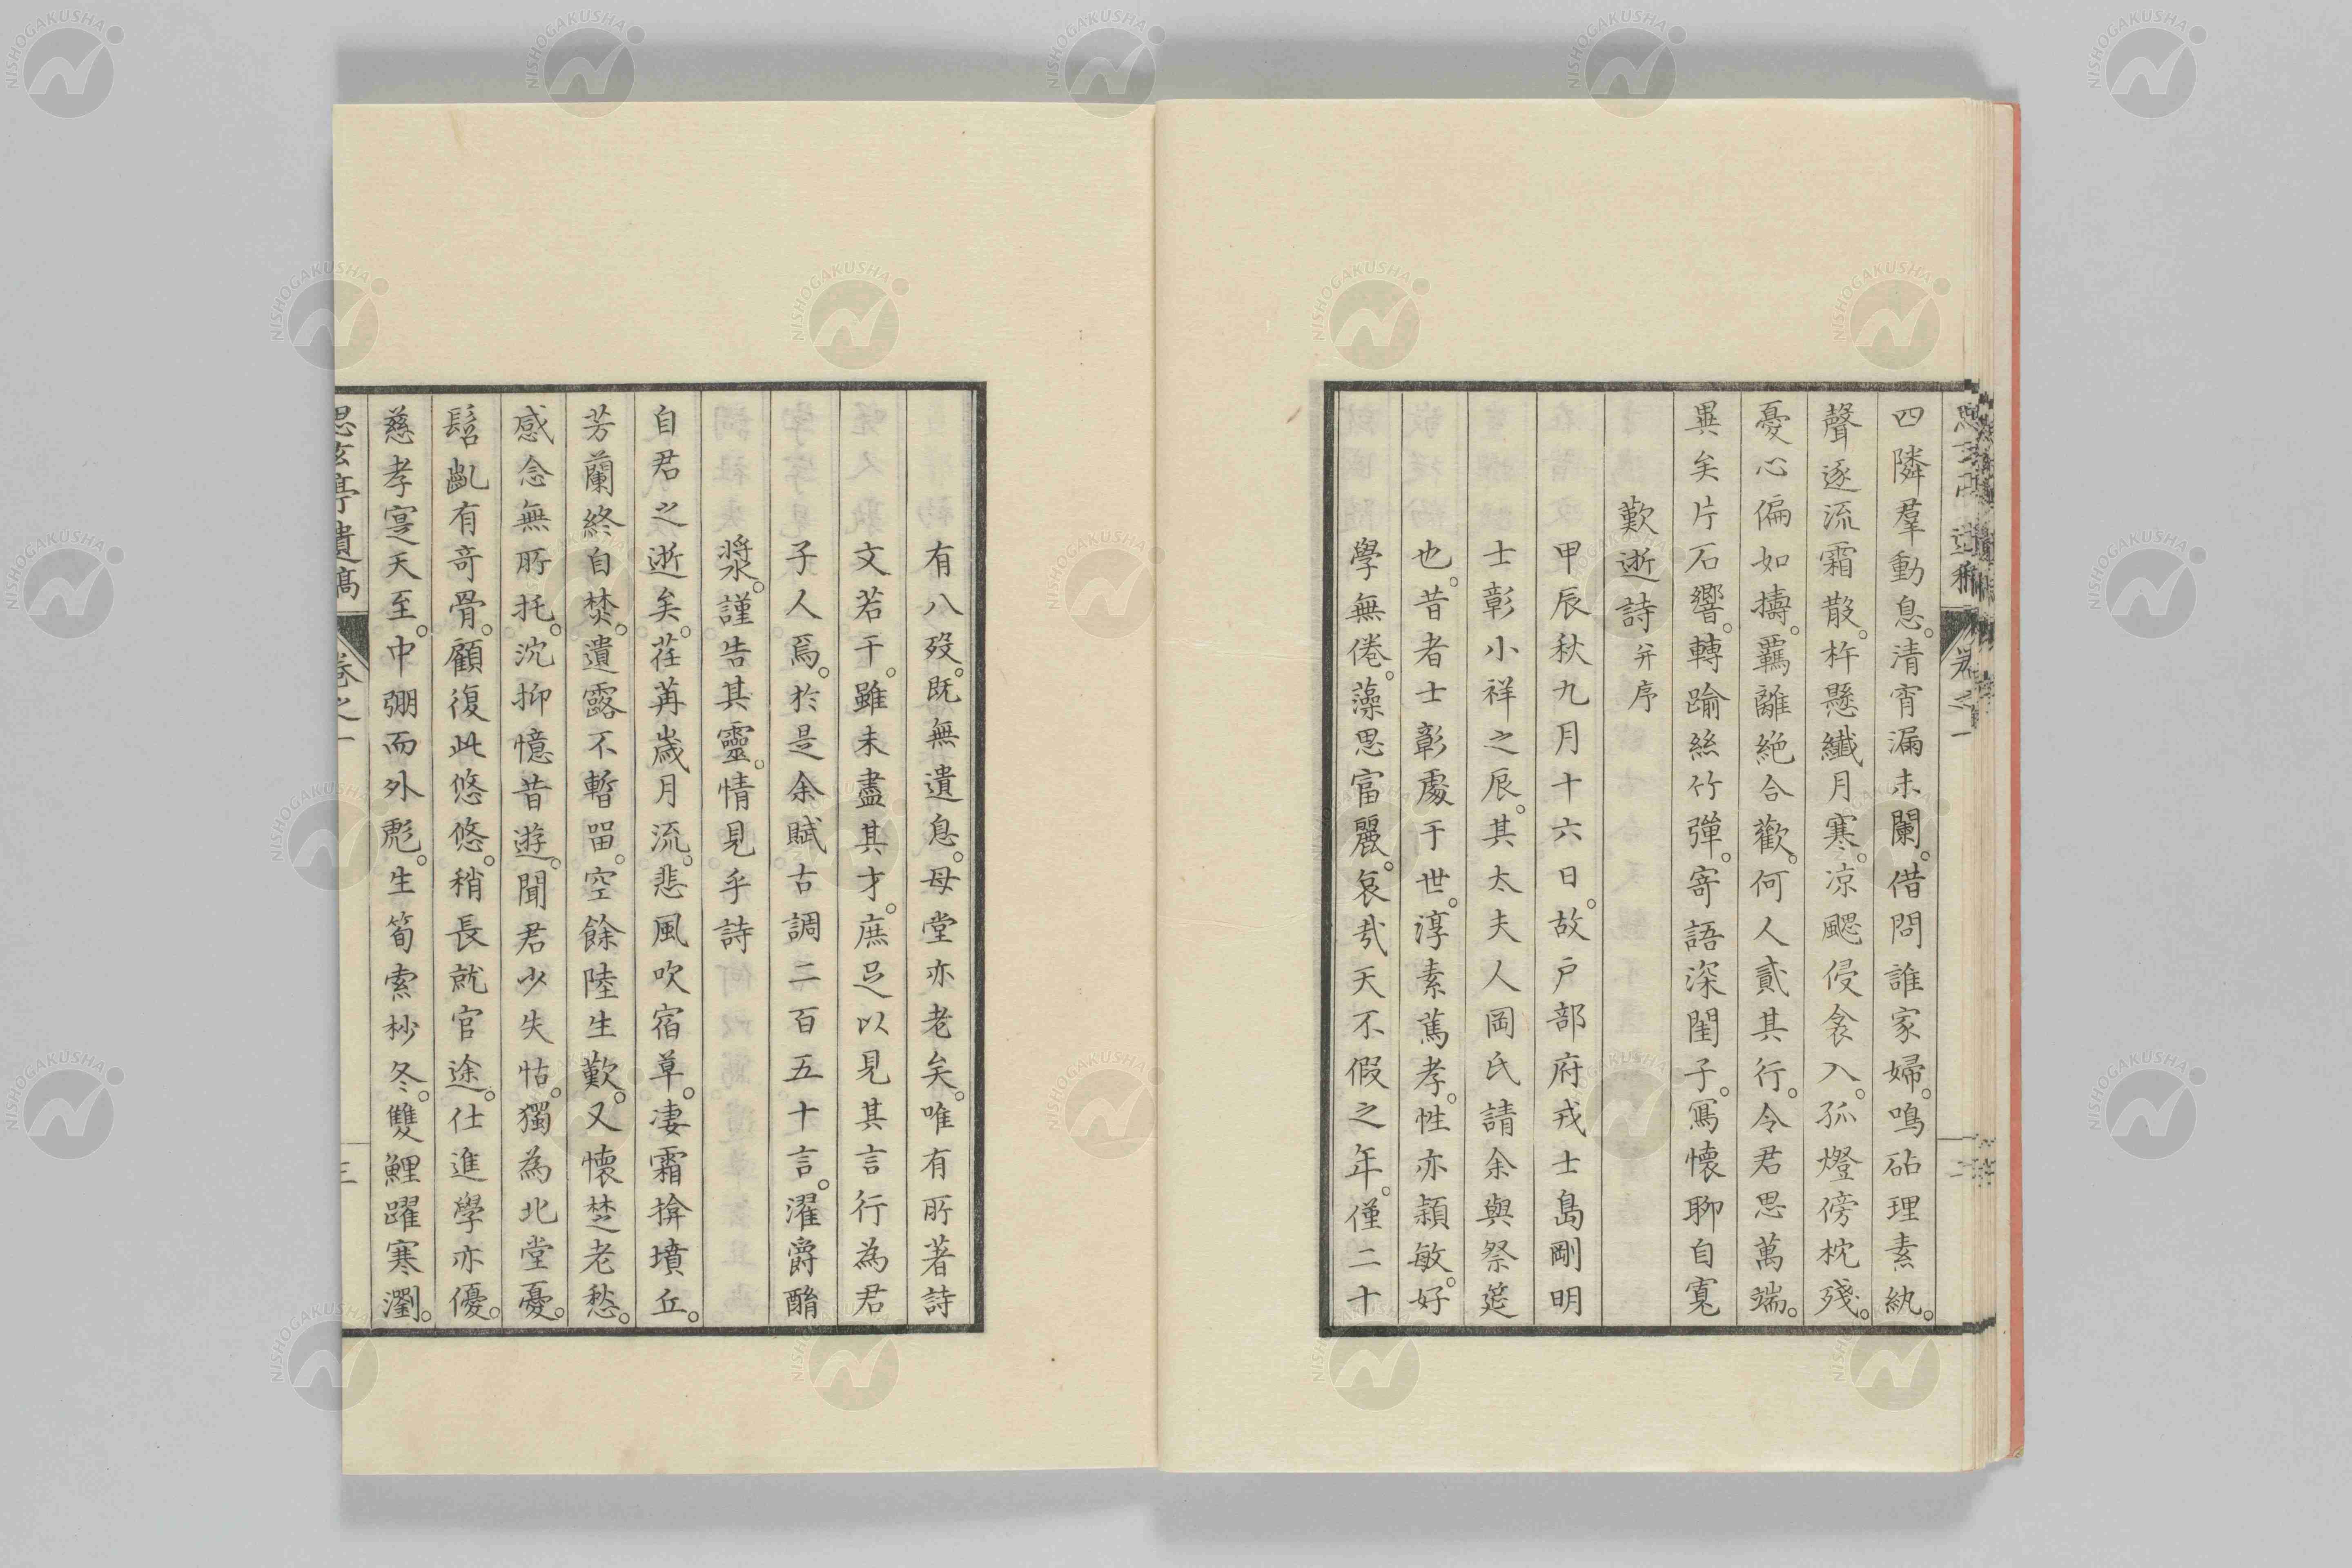 四隣羣動息。清宵漏未闌。借問誰家婦。鳴砧理素紈。
聲逐流霜散。杵懸纖月寒。凉颸侵衾入。孤燈傍枕殘。
憂心偏如擣。羈離絶合歡。何人貳其行。令君思萬端。
異矣片石響。轉踰絲竹彈。寄語深閨子。寫懷聊自寬
歎逝詩并序
甲辰秋九月十六日。故户部府戎士島剛明
士彰小祥之辰。其太夫人岡氏請余與祭筵
也。昔者士彰處于世。淳素篤孝。性亦穎敏。好
學無倦。藻思富麗。哀哉天不假之年。僅二十
有八歿。既無遺息。母堂亦老矣。唯有所著詩
文若干。雖未盡其才。庶足以見其言行為君
子人焉。於是余賦古調二百五十言。濯爵酳
漿。謹告其靈。情見乎詩
自君之逝矣。荏苒歲月流。悲風吹宿草。凄霜揜墳丘。
芳蘭終自焚。遺露不暫留。空餘陸生歎。又懷楚老愁。
感念無所托。沈抑憶昔遊。聞君少失怙。獨為北堂憂。
髫齓有奇骨。顧復此悠悠。稍長就官途。仕進學亦優。
慈孝寔天至。中弸而外彪。生筍索杪冬。雙鯉躍寒瀏。
思玄亭遺稿 卷之一 三
NISHOGAKUSHA